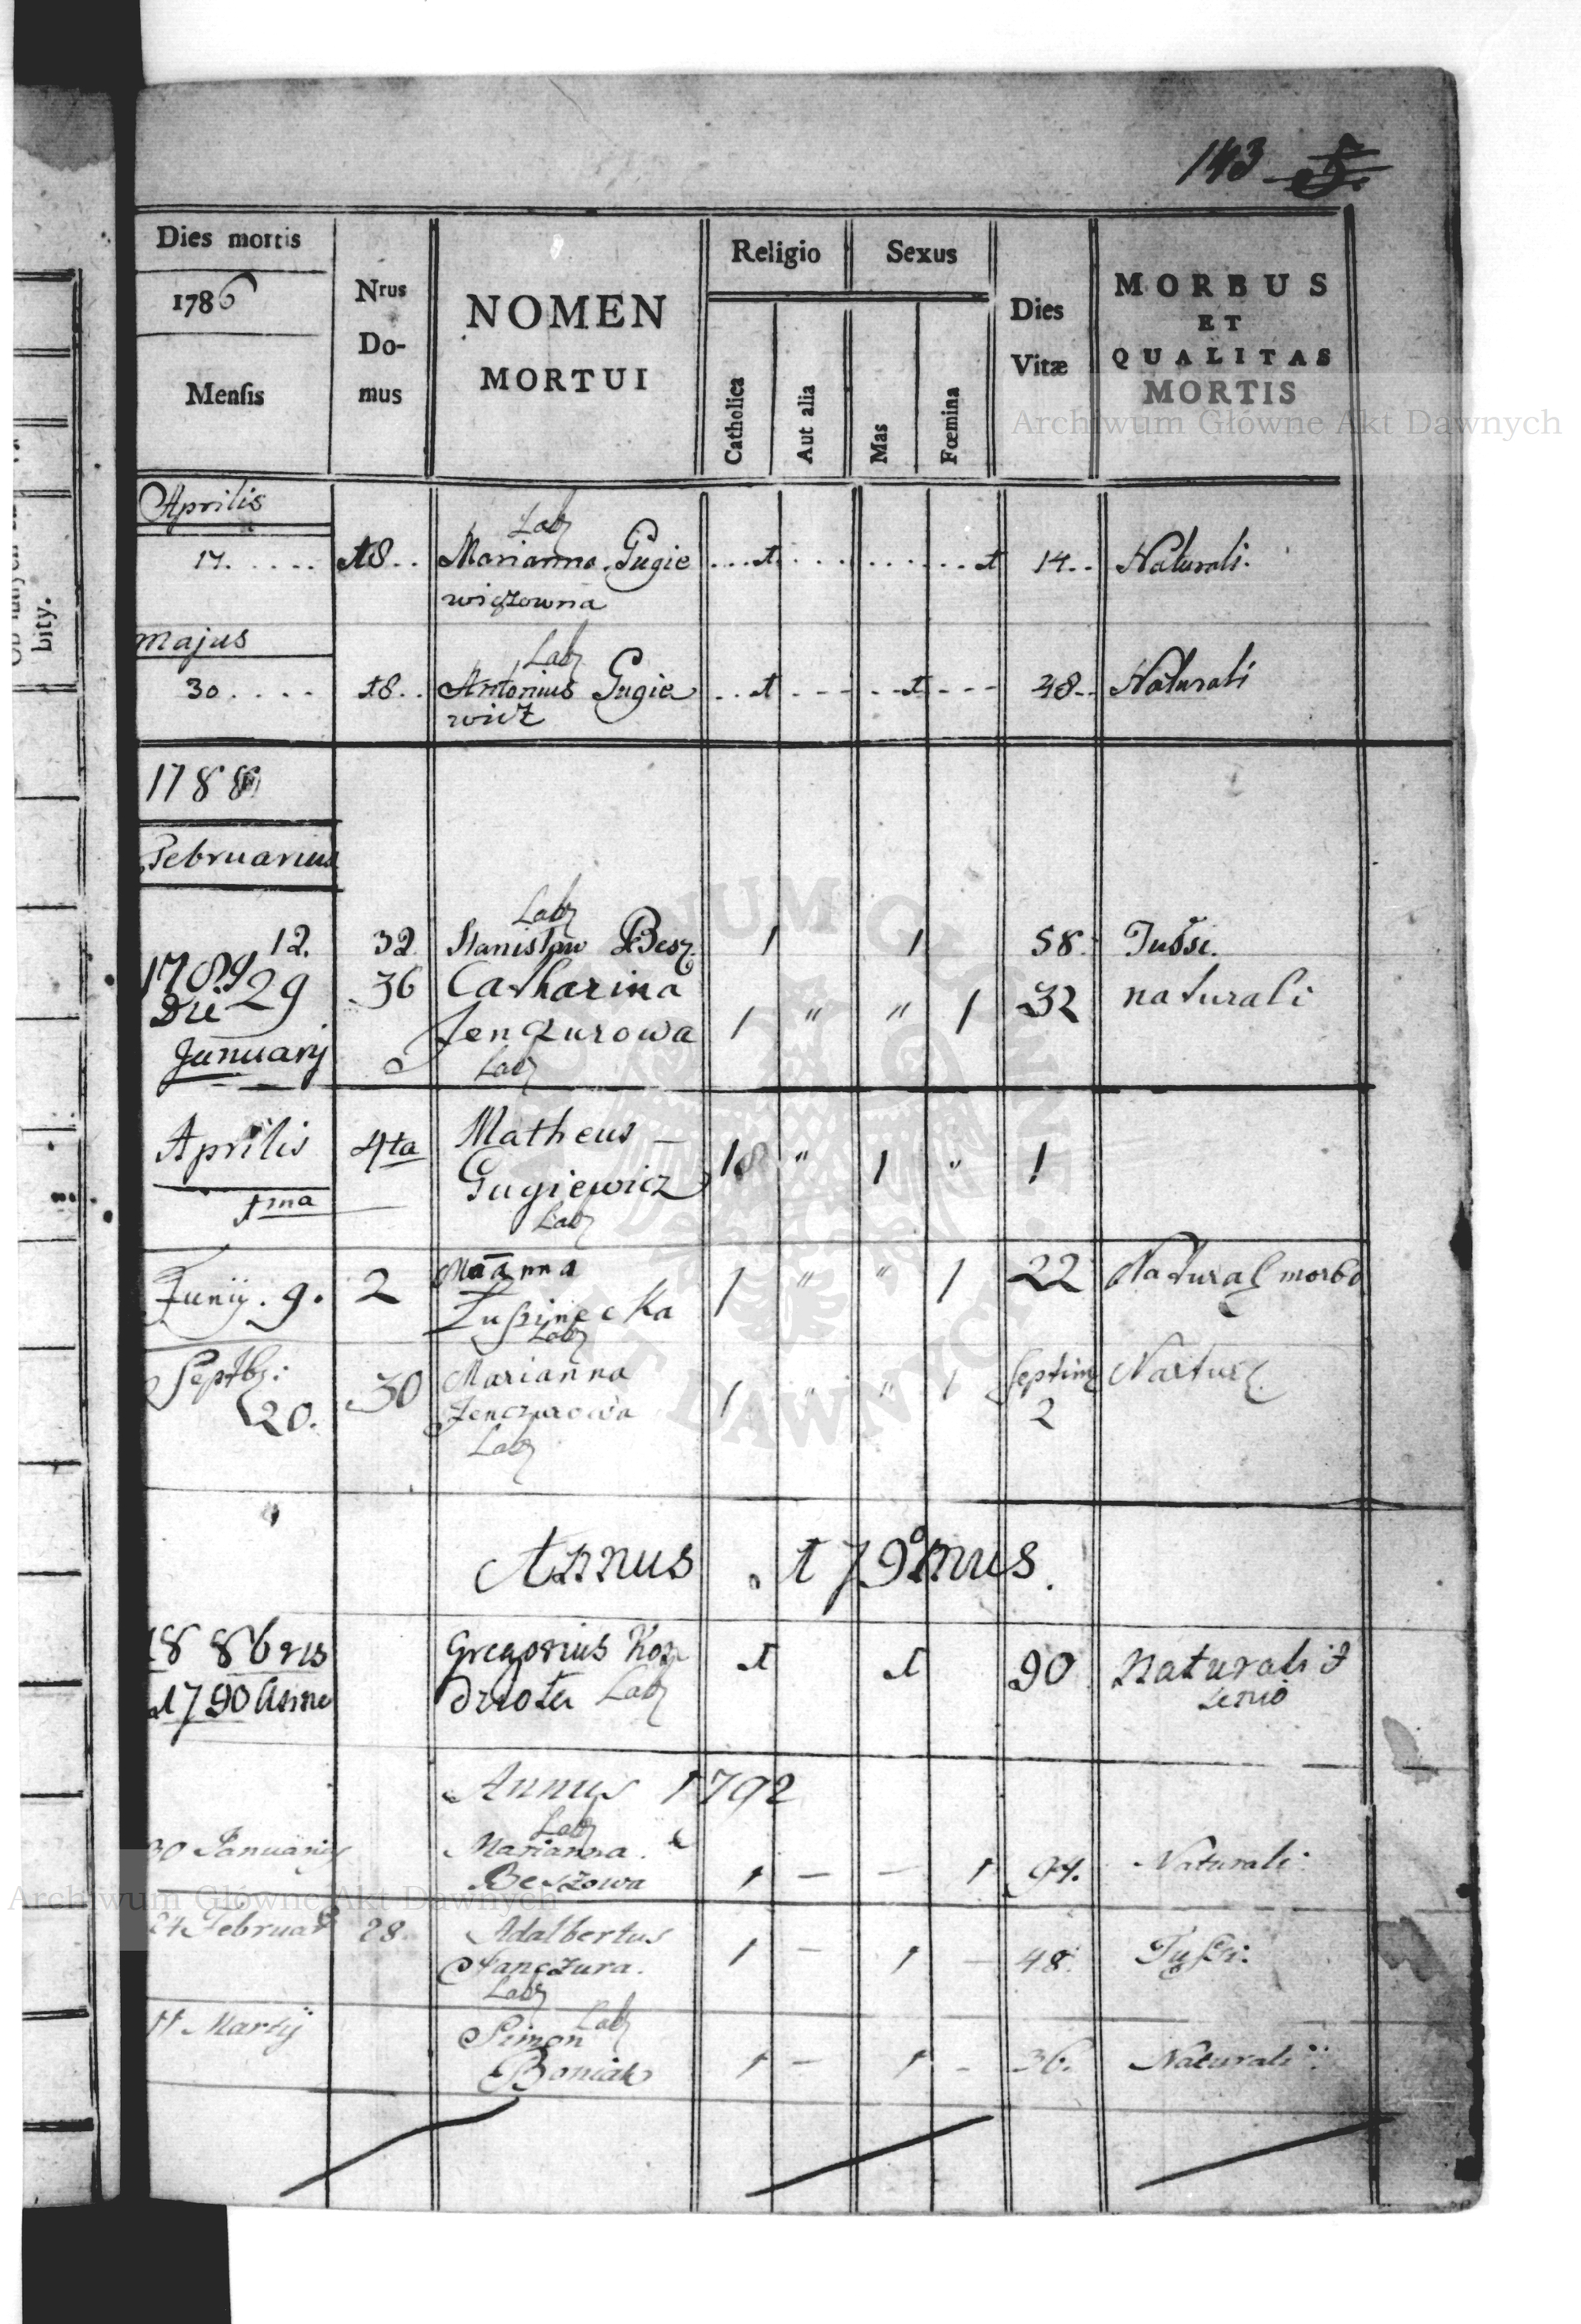 143 5.
Dies mortis
1786
Mensis
Nrus
Do-
mus
NOMEN
MORTUI
Religio
Catholica
Aut alia
Sexus
Mas
Fœmina
Dies
Vitæ
MORBUS
ET
QUALITAS
MORTIS
Archiwum Główne Akt Dawnych
Aprilis
Lab
17. 18.. Marianna Gugie 1 1 14.. Naturali.
wiczowna
Majus
Lab
30 18.. Antonius Gugie 1 1 48.. Naturali
wicz
1788
Februarius
Lab
12. 32 Stanislaw Besz 1 1 58. Tussi.
1789
Die 29 36 Catharina 32 naturali
January Jenczurowa 1 " " 1
Lab
Aprilis 4ta Matheus – 1 " 1 " 1
1ma Gugiewicz
Lab
Junij. 9. 2 Maanna 1 " " 1 22 Natural morbo
Lab
Septbr: 30 Marianna 1 " " 1 Septim Natur
20. Jenczurowa 2
Lab
Annus 179mus.
18 8bris Gregorius Kon 1 1 90 Naturali &
1790 Anno druota Lab senio
Annus 1792
Lab
30 Januarij Marianna 1 – – 1 94. Naturali
Beszowa
24 Februar 28. Adalbertus 1 – 1 – 48. Tussi:
Janczura.
Lab
11 Martij Simon Lab 1 – 1 – 36. Naturali
Boniak
bity.
ARCHIWUM GŁÓWNE AKT DAWNYCH
Archiwum Główne Akt Dawnych